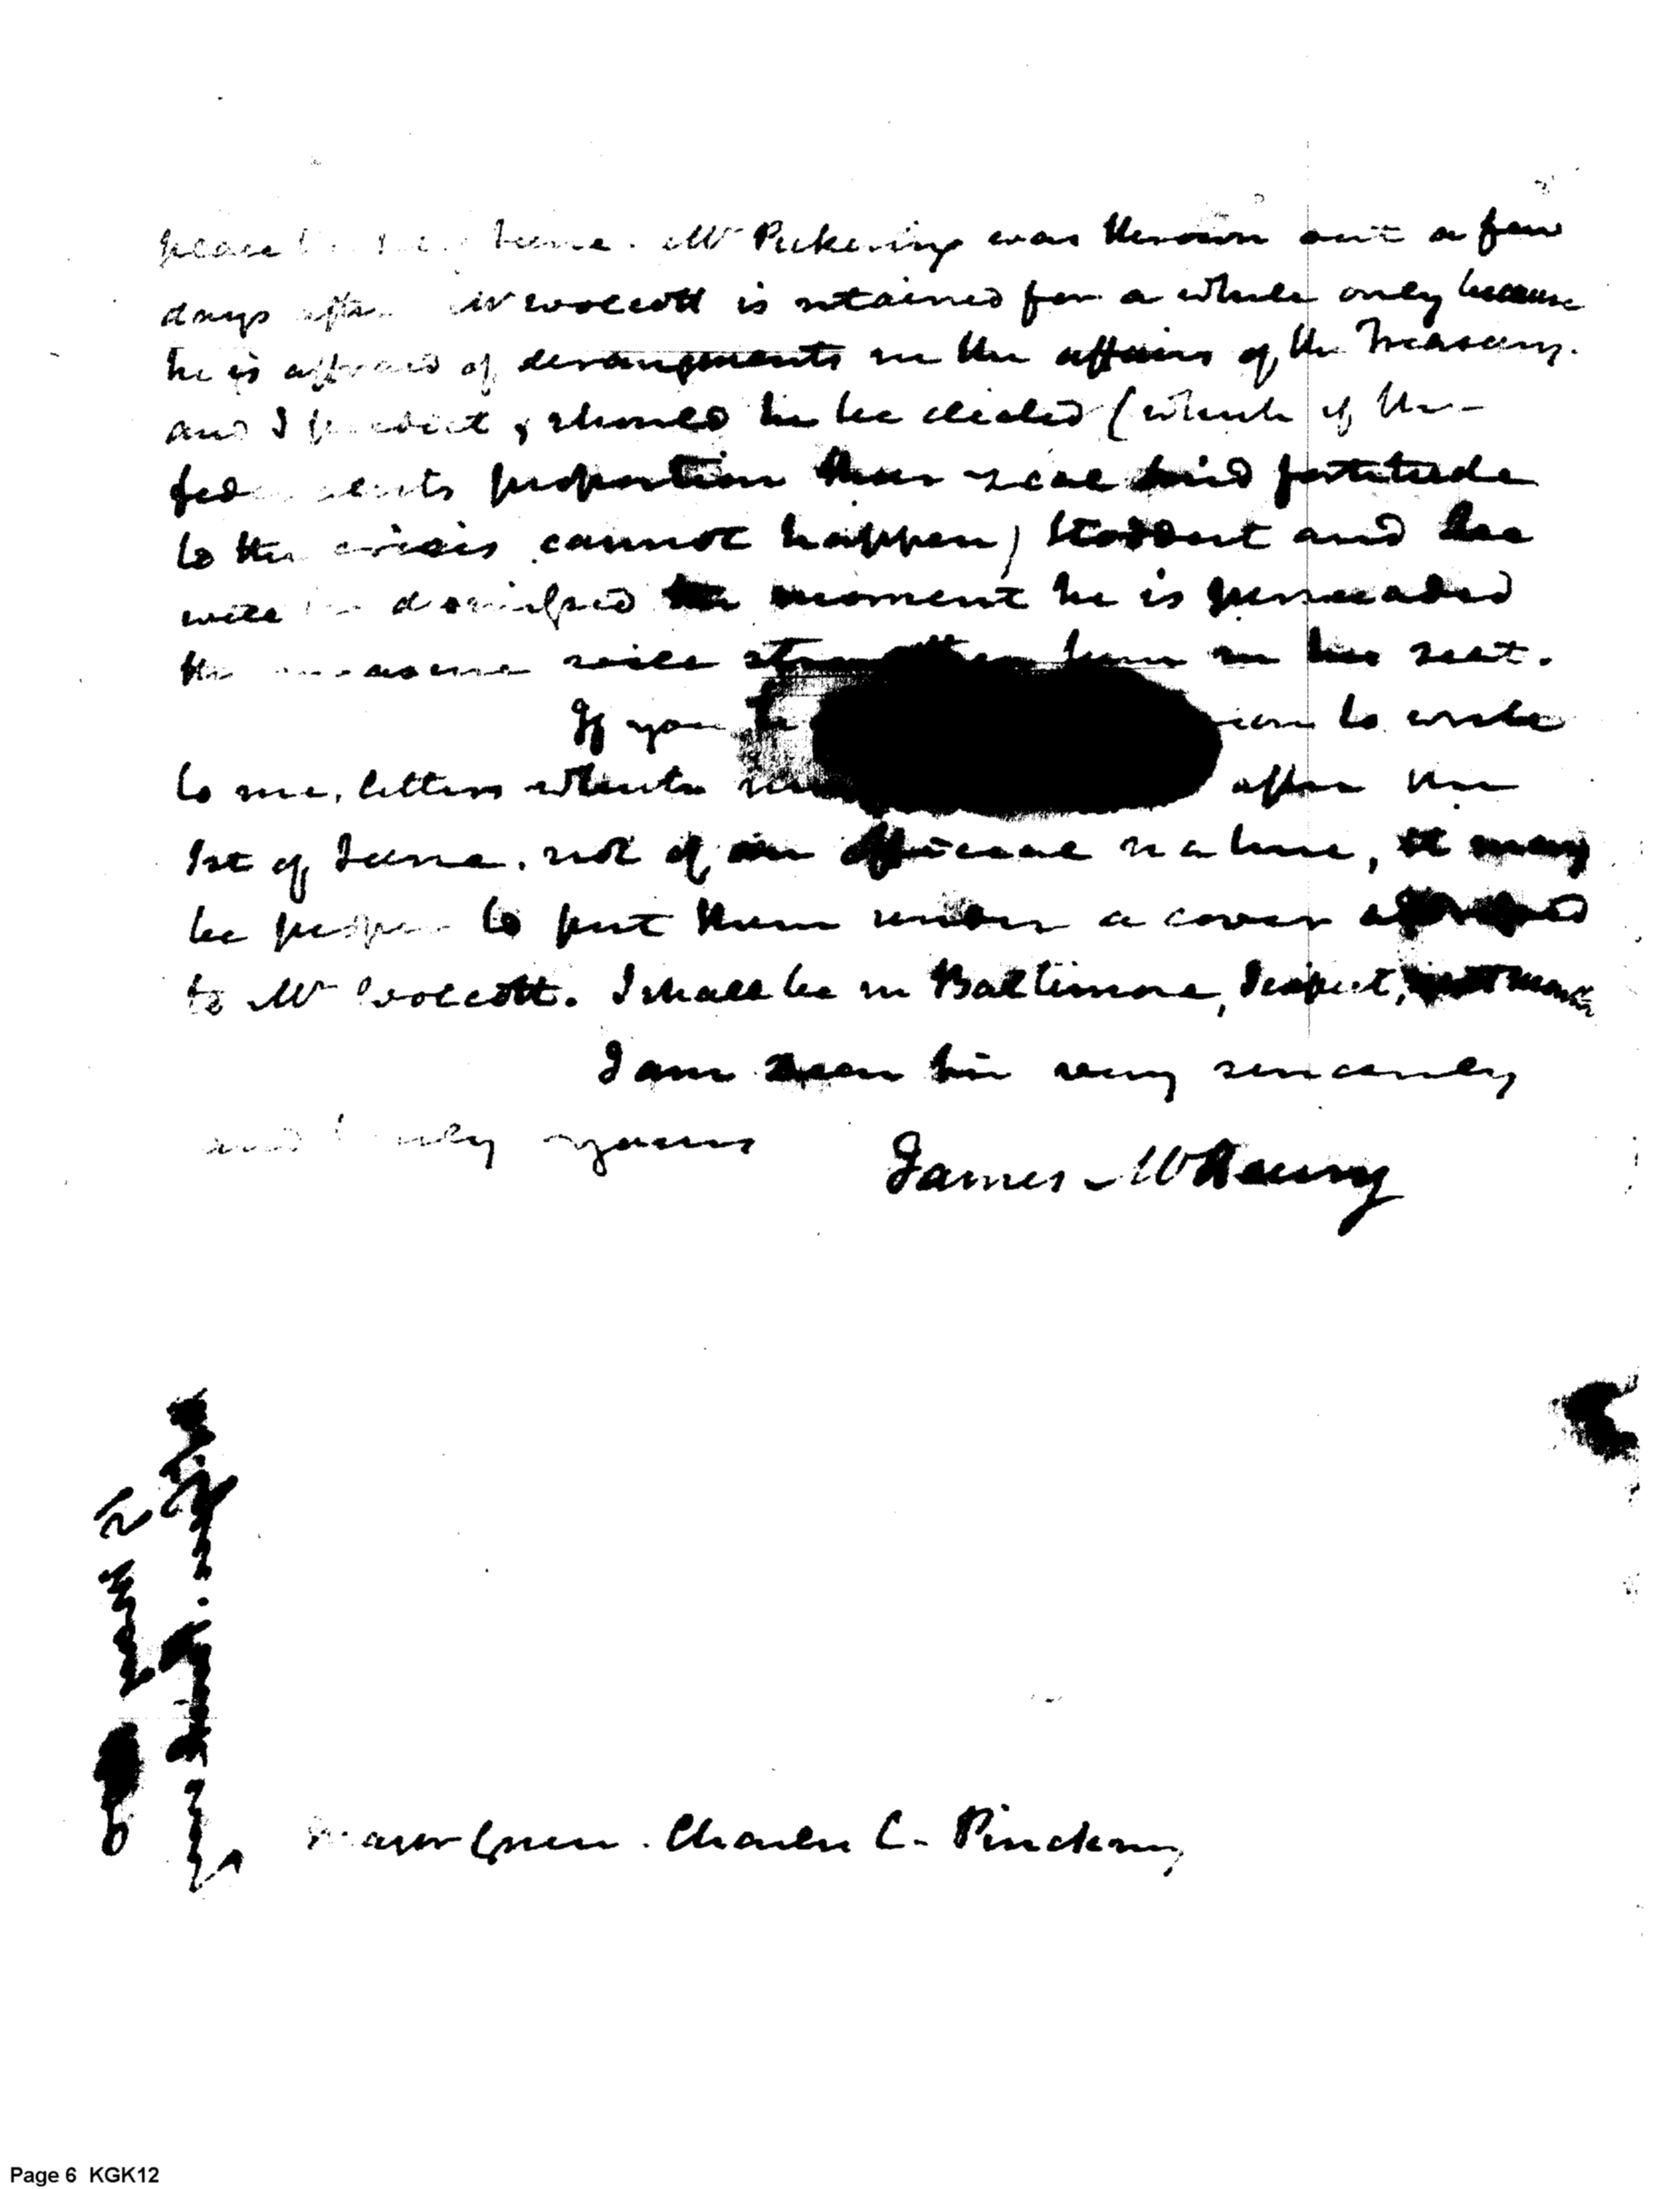 place June. Mr Pickering was thrown out a few
days after Mr Wolcott is retained for a while only because
he is affraid of derangements in the affairs of the Treasury.
and I predict, should he be elected (which if the
federalists proportion their zeal and fortitude
to the crisis cannot happen) Stoddert and Lee
will be dismissed the moment he is persuaded
the measure will strengthen him in his seat.
If you to write
to me, letters which after the
1st of June. not of an official nature, it may
be proper to put them under a cover addressed
to Mr Wolcott. I shall be in Baltimore, I expect,
I am Dear Sir very sincerely
and truly yours
James McHenry
Major Genl. Charles C. Pinckney
Page 6 KGK12